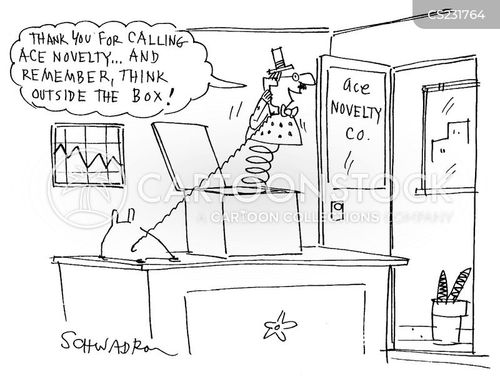 CS231764
THANK YOU FOR CALLING
ACE NOVELTY... AND
REMEMBER, THINK
OUTSIDE THE BOX!
ace
NOVELTY
CO.
CARTOONSTOCK
A CARTOON COLLECTIONS COMPANY
SCHWADRON